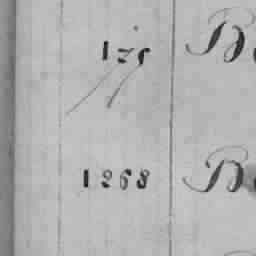 125 B
1268 B